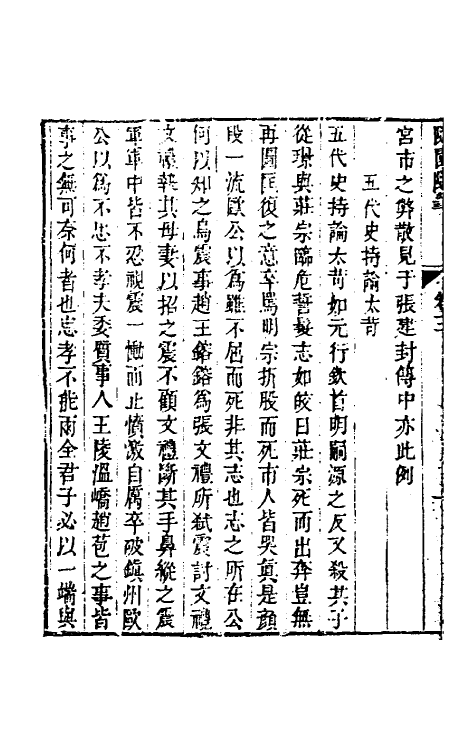 宮市之弊散見于張建封傳中亦此例
五代史持論太苛
五代史持論太苛如元行欽首明嗣源之反又殺其子
從璟與莊宗臨危誓髮志如皎日莊宗死而出奔豈無
再圖恢復之意卒罵明宗折股而死市人皆哭真是顏
段一流歐公以為雖不屈而死非其志也志之所在公
何以知之烏震事趙王鎔鎔為張文禮所弒震討文禮
文禮執其母妻以招之震不顧文禮斷其手鼻縱之震
軍軍中皆不忍視震一慟而止憤激自厲卒破鎮州歐
公以為不忠不孝夫委質事人王陵溫嶠趙苞之事皆
事之無可奈何者也忠孝不能兩全君子必以一端與